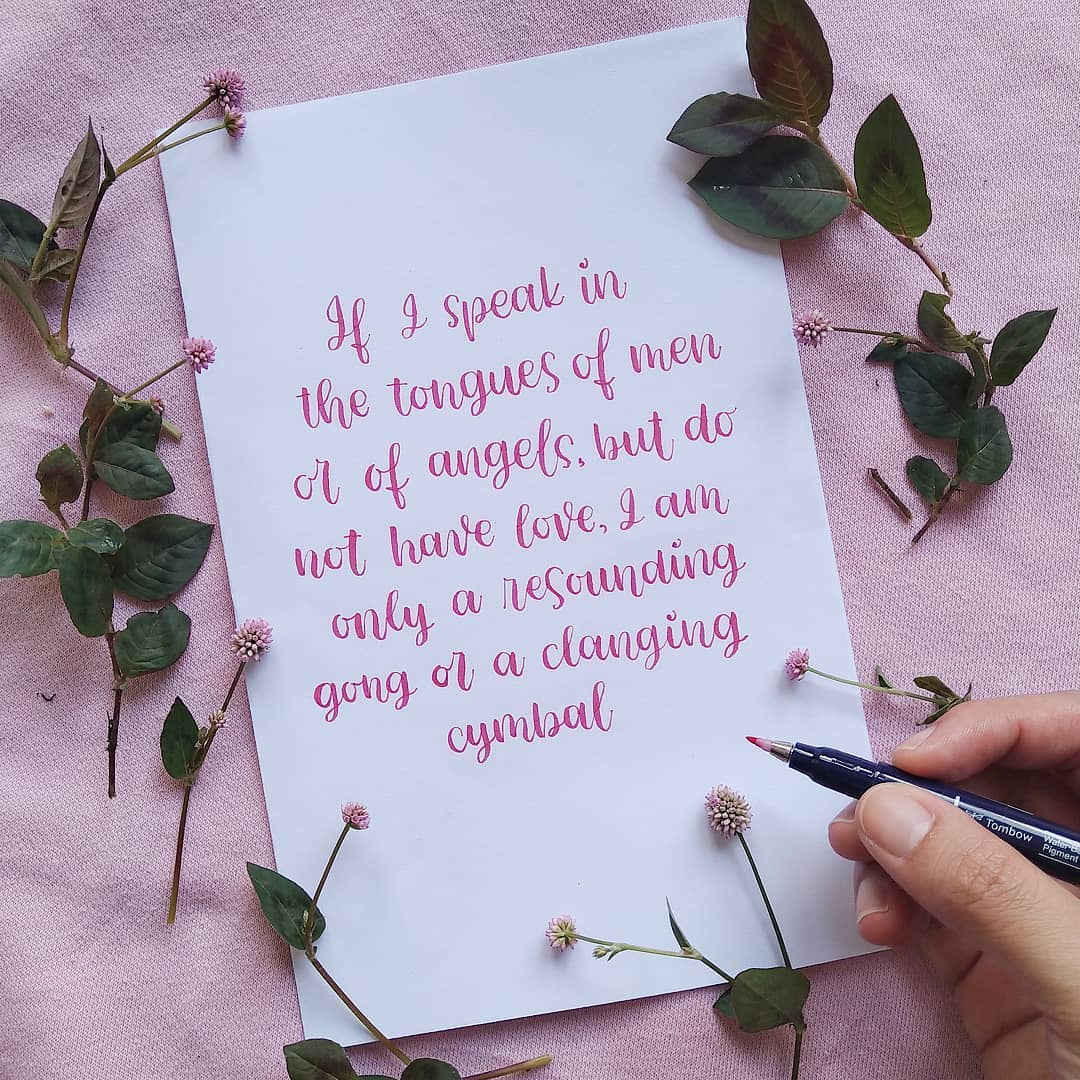 If I speak in
the tongues of men
or of angels, but do
not have love, I am
only a resounding
gong or a clanging
cymbal
Tombow
Pigment